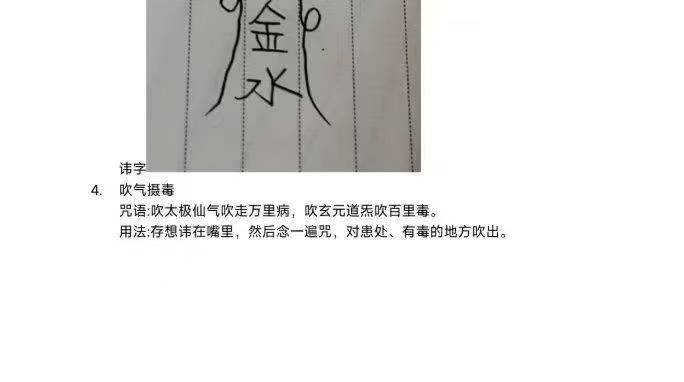 金
水
讳字
4. 吹气摄毒
咒语:吹太极仙气吹走万里病，吹玄元道炁吹百里毒。
用法:存想讳在嘴里，然后念一遍咒，对患处、有毒的地方吹出。